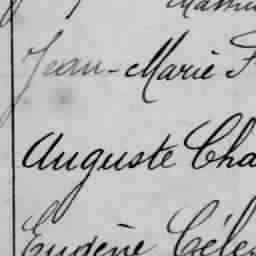 Jean-Marie F
Auguste Cha
Eugène Céles